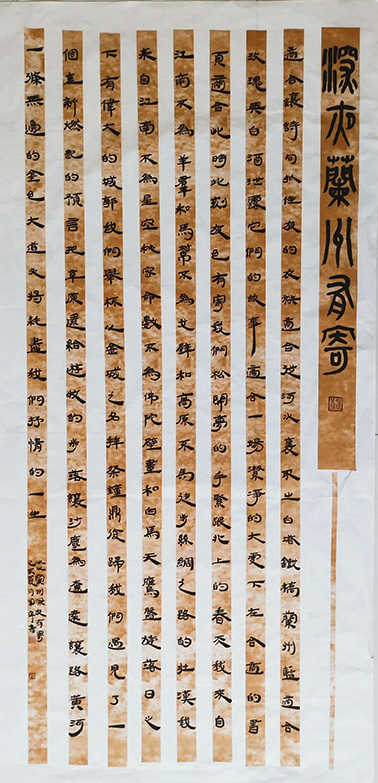 深夜蘭州有寄
適合讓詩句抓住夜的適合從河水裏取出白塔鐵橋蘭州藍適合
玫瑰與白酒泄露它們的故事適合一場潔淨的大雪下在合適的書
頁適合此時此刻夜色有寄我們松開夢的手緊跟北上的春天我來自
江南不為羊羣和馬幫不為和高原不馬徒步絲綢之路的壯漢我
來自江南不為星空秘密命數不為佛陀壁畫和白馬天鷹盤旋落日之
下有偉大的城郭我們舉杯以金城之名拜祭鐘鼎復歸我們遇見了一
個重新燃起的預言把草原還給游牧的步落讓沙塵為遠讓路黃河
一條無邊的金色大道又將耗盡我們抒情的一生